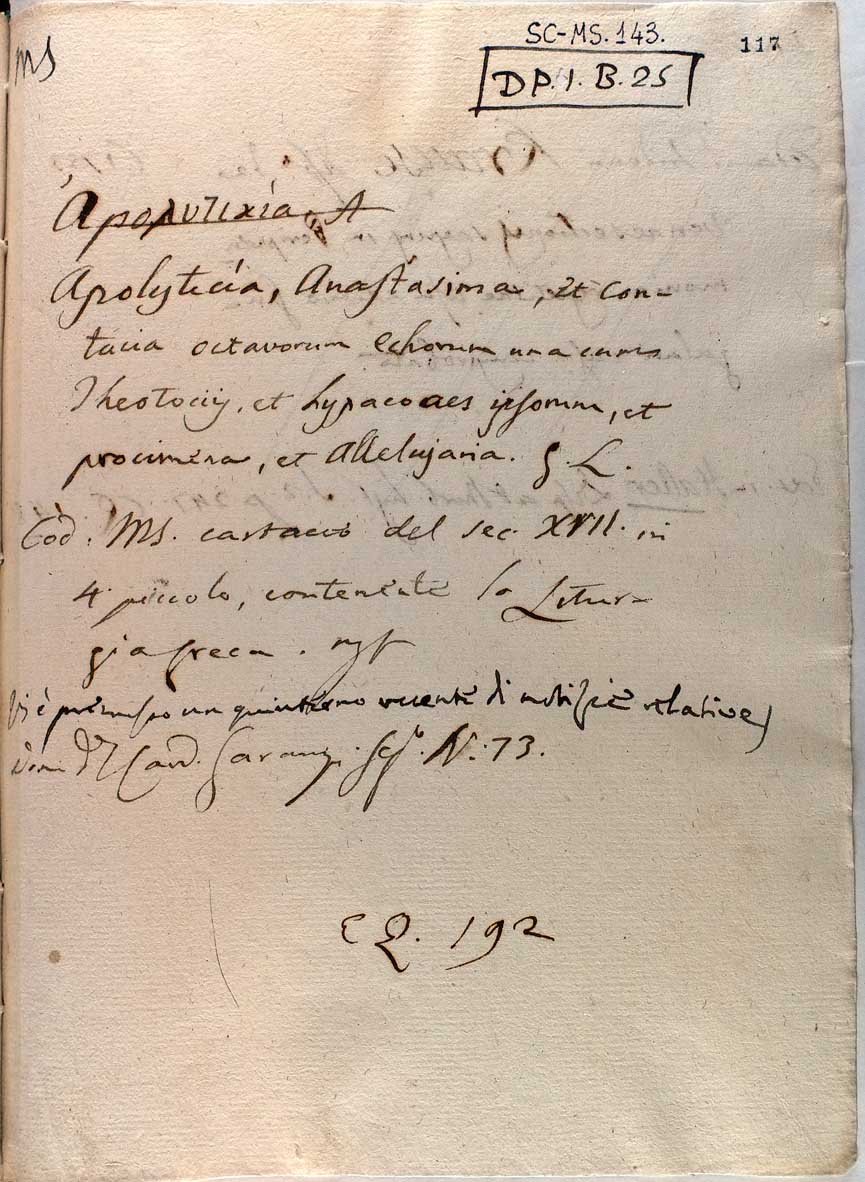 MS
SC-MS. 143.
117
DP. I. B. 25
Apolyticía, Anastasima, et con-
tacia octavorum Echorum una cum
Theotociis, et hypacoaes ipsorum, et
procimena, et Allelujaria. G. L.
Cod. MS. cartaceo del sec. XVII. in
4. piccolo, contenente la Litur-
gia greca.
Vi è premesso un quinterno recente di notizie relative
Card. Garampi. N. 73.
E Q. 192